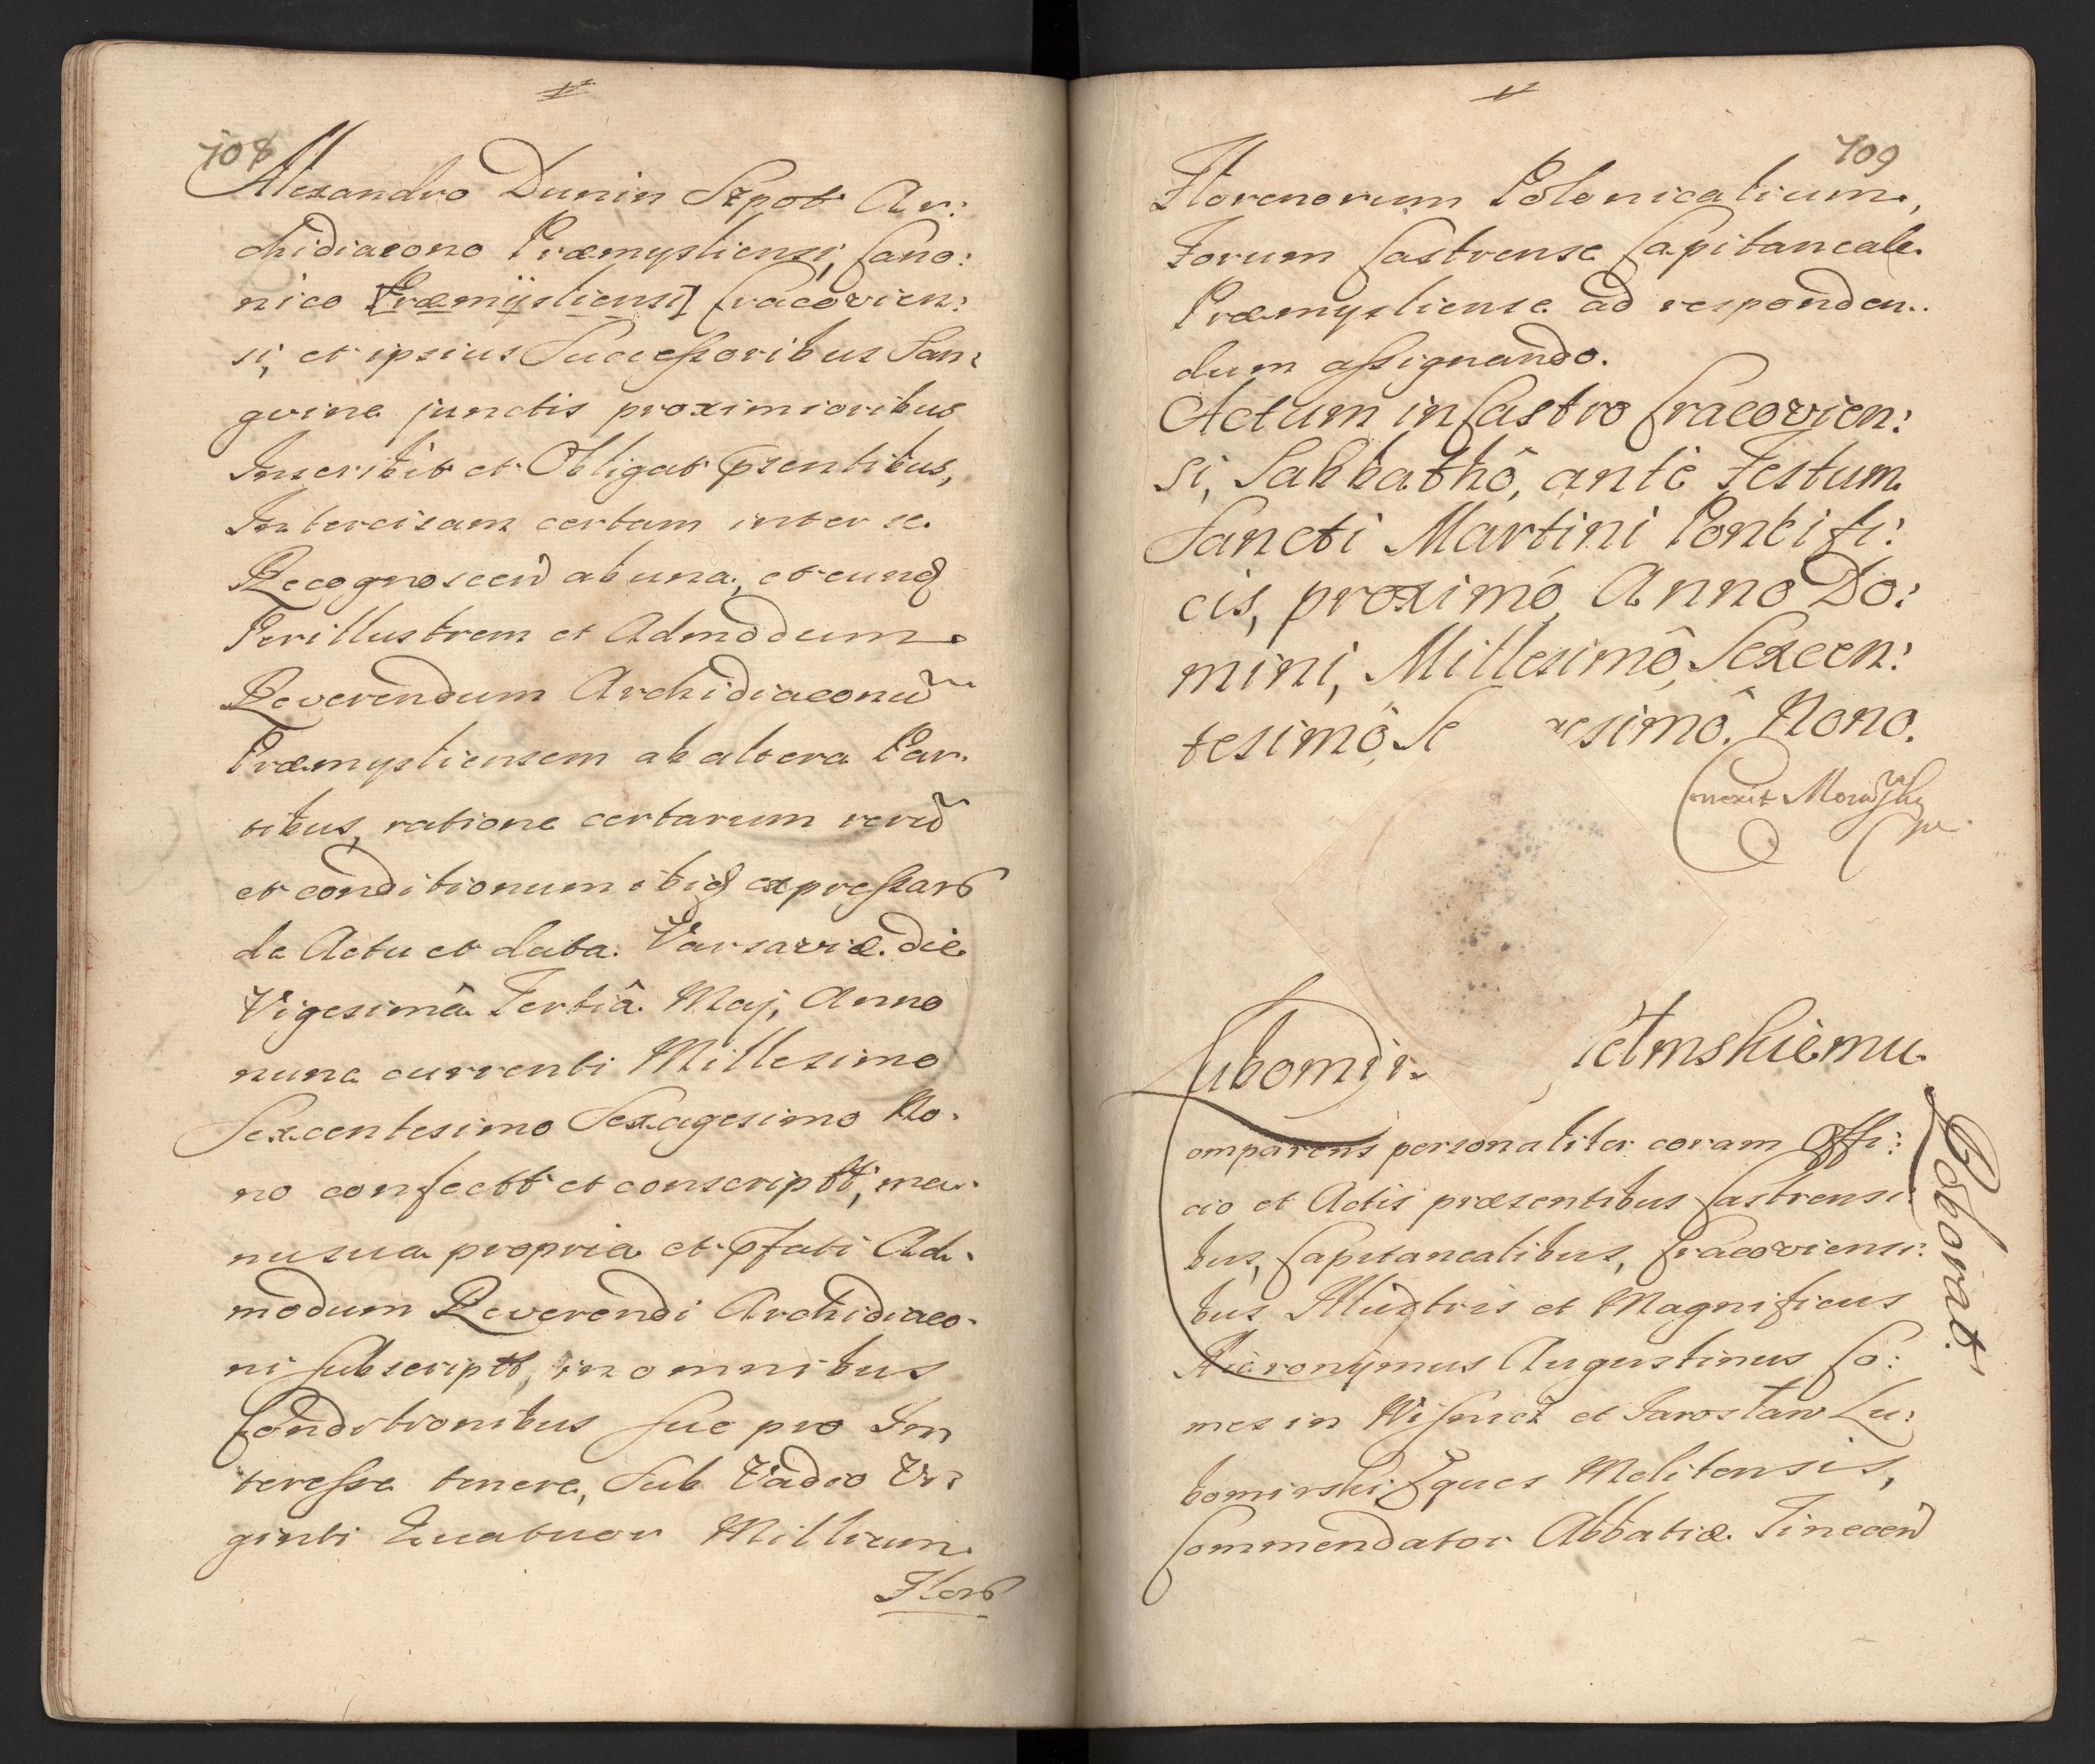 108
Alexandro Dunin Szpot Ar:
chidiacono Præmysliensi, Cano:
nico [Præmÿsliensi] Cracovien:
si, et ipsius Successoribus San:
gvine junctis proximioribus
Inscribit et Obligat psentibus,
Intercisam certam inter se
Recognoscen̄ ab una, et eunq
Perillustrem et Admodum
Reverendum Archidiaconū
Præmysliensem ab altera Par.
tibus, ratione certarum rerū
et conditionum ibiq expressar
de Actu et data Varsaviæ die
Vigesimâ Tertiâ Maj, Anno
nunc currenti Millesimo
Sexcentesimo Sexagesimo No.
no confectt et conscriptt, ma.
nu sua propria et pfati Ad.
modum Reverendi Archidiaco.
ni subscriptt, in omnibus
Conditionibus suo pro In
teresse tenere, Sub Vadio Vi:
ginti Quatuor Millium
Flor
109
Florenorum Polonicalium,
Forum Castrense Capitaneale
Præmysliense ad responden.
dum assignando.
Actum in Castro Cracovien:
si, Sabbathô, antè Festum
Sancti Martini Pontifi:
cis, proximô, Anno Do:
mini, Millesimô, Sexcen:
tesimô, Se gesimô, Nono.
Lubomir. letmskiemu
Roborat.
omparens personaliter coram Offi:
cio et Actis præsentibus Castrensi
bus, Capitanealibus, Cracoviensi.
bus Illustris et Magnificus
Hieronÿmus Augustinus Co:
mes in Wisnicz et Jarosław Lu:
bomirski, Eques Melitensis,
Commendator Abbatiæ Tinecen̄